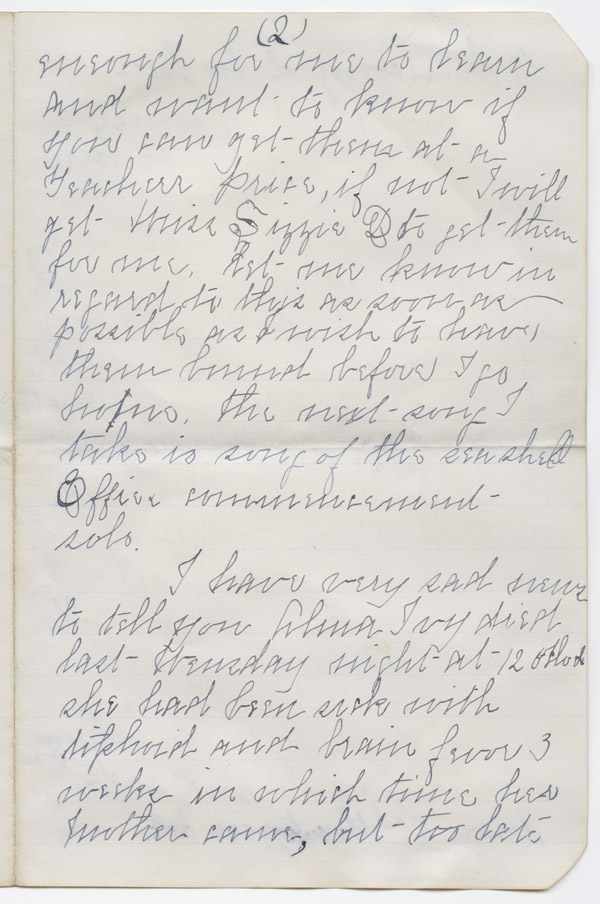 (2)
enough for me to learn
and want to know if
you can get them at a
Teachers price, if not I will
get Miss Lizzie D to get them
for me. Let me know in
regard to this as soon as
possible as I wish to have
them bound before I go
home. The next song I
take is song of the sea shell
Effies commencement
solo.
I have very sad news
to tell you Alma Ivy died
last Tuesday night at 12 oclock
she had been sick with
tiphoid and brain fevor 3
weeks in which time her
mother came, but too late